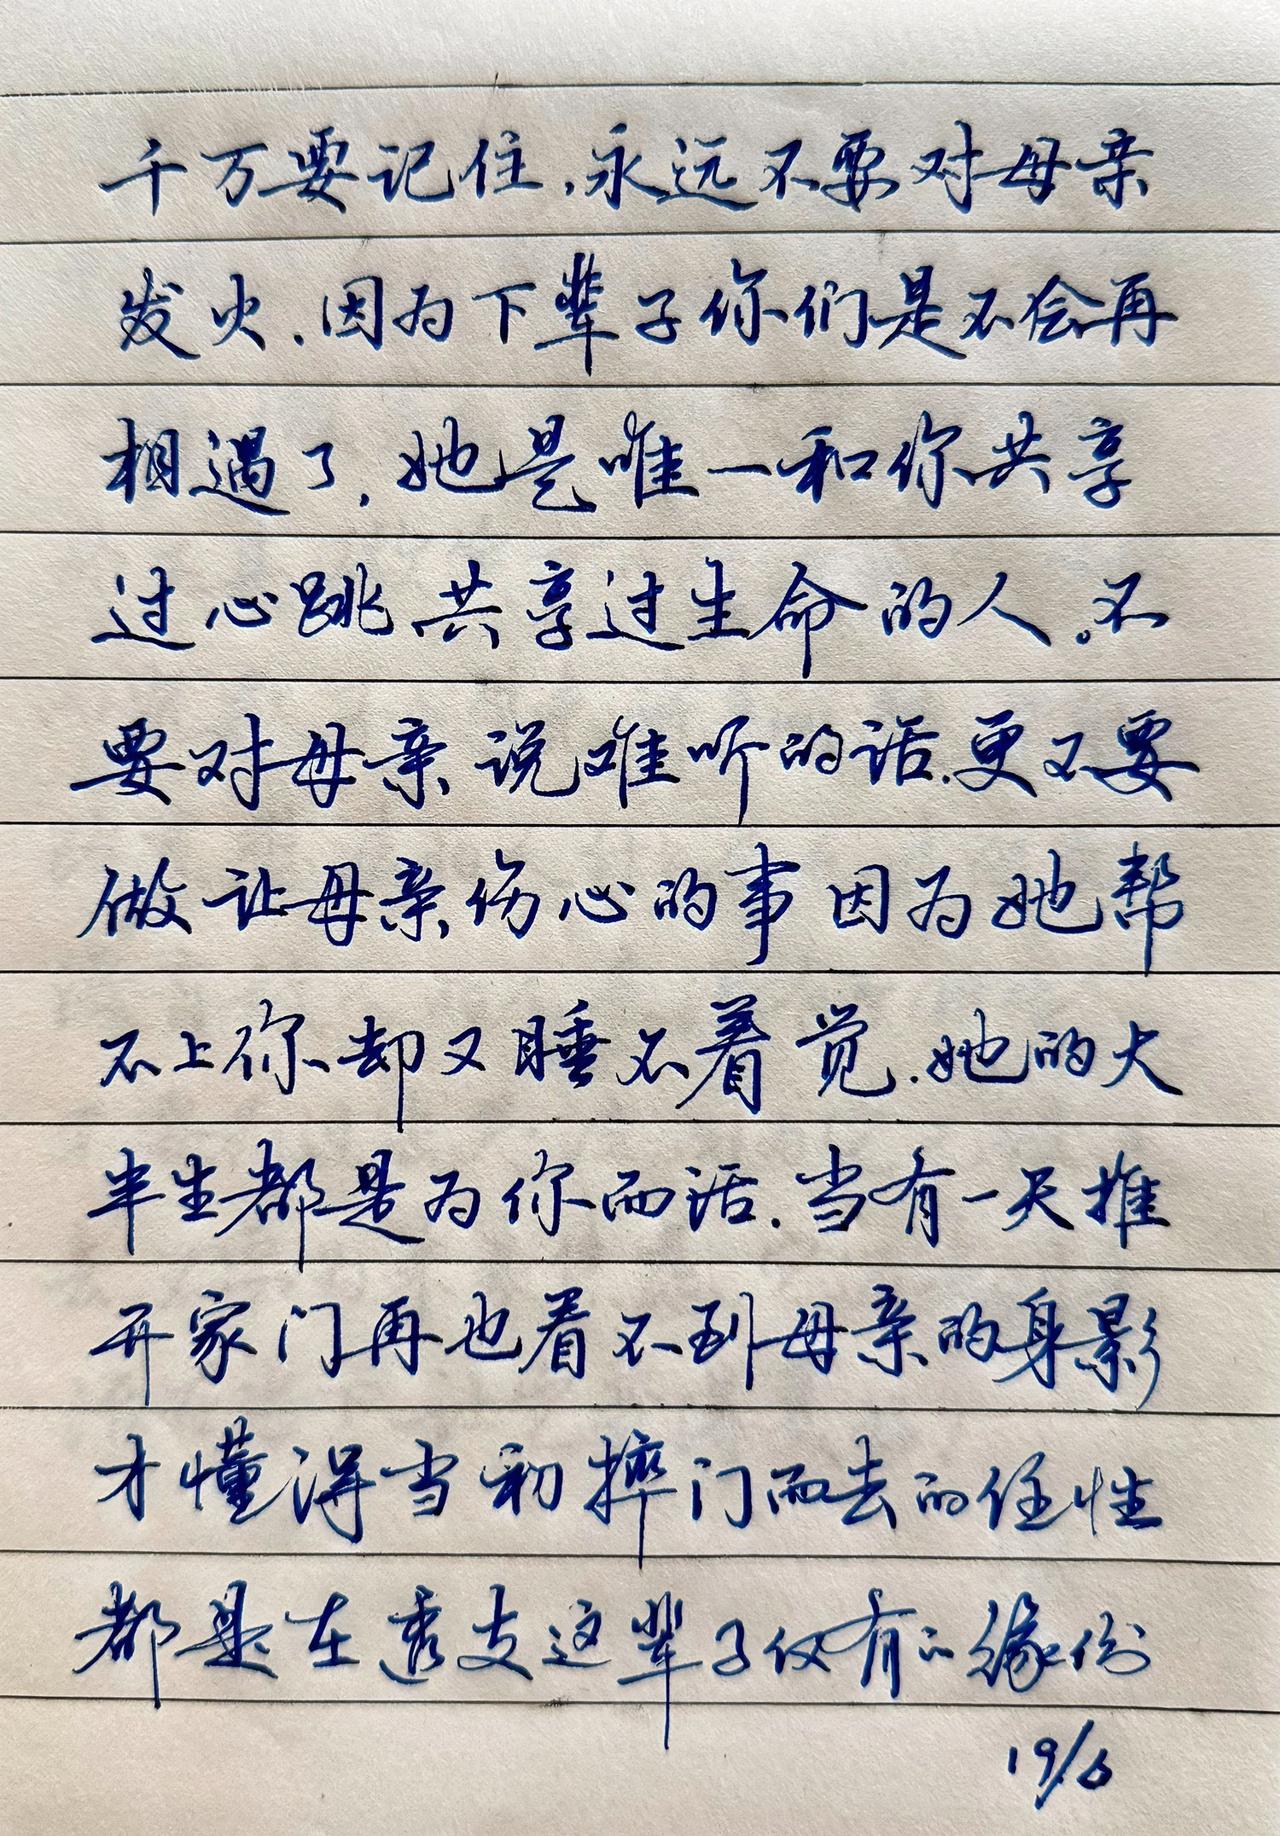 千万要记住,永远不要对母亲
发火.因为下辈子你们是不会再
相遇了,她是唯一和你共享
过心跳、共享过生命的人。不
要对母亲说难听的话.更不要
做让母亲伤心的事因为她帮
不上你却又睡不着觉.她的大
半生都是为你而活.当有一天推
开家门再也看不到母亲的身影
才懂得当初摔门而去的任性
都是在透支这辈子仅有的缘份
19/6